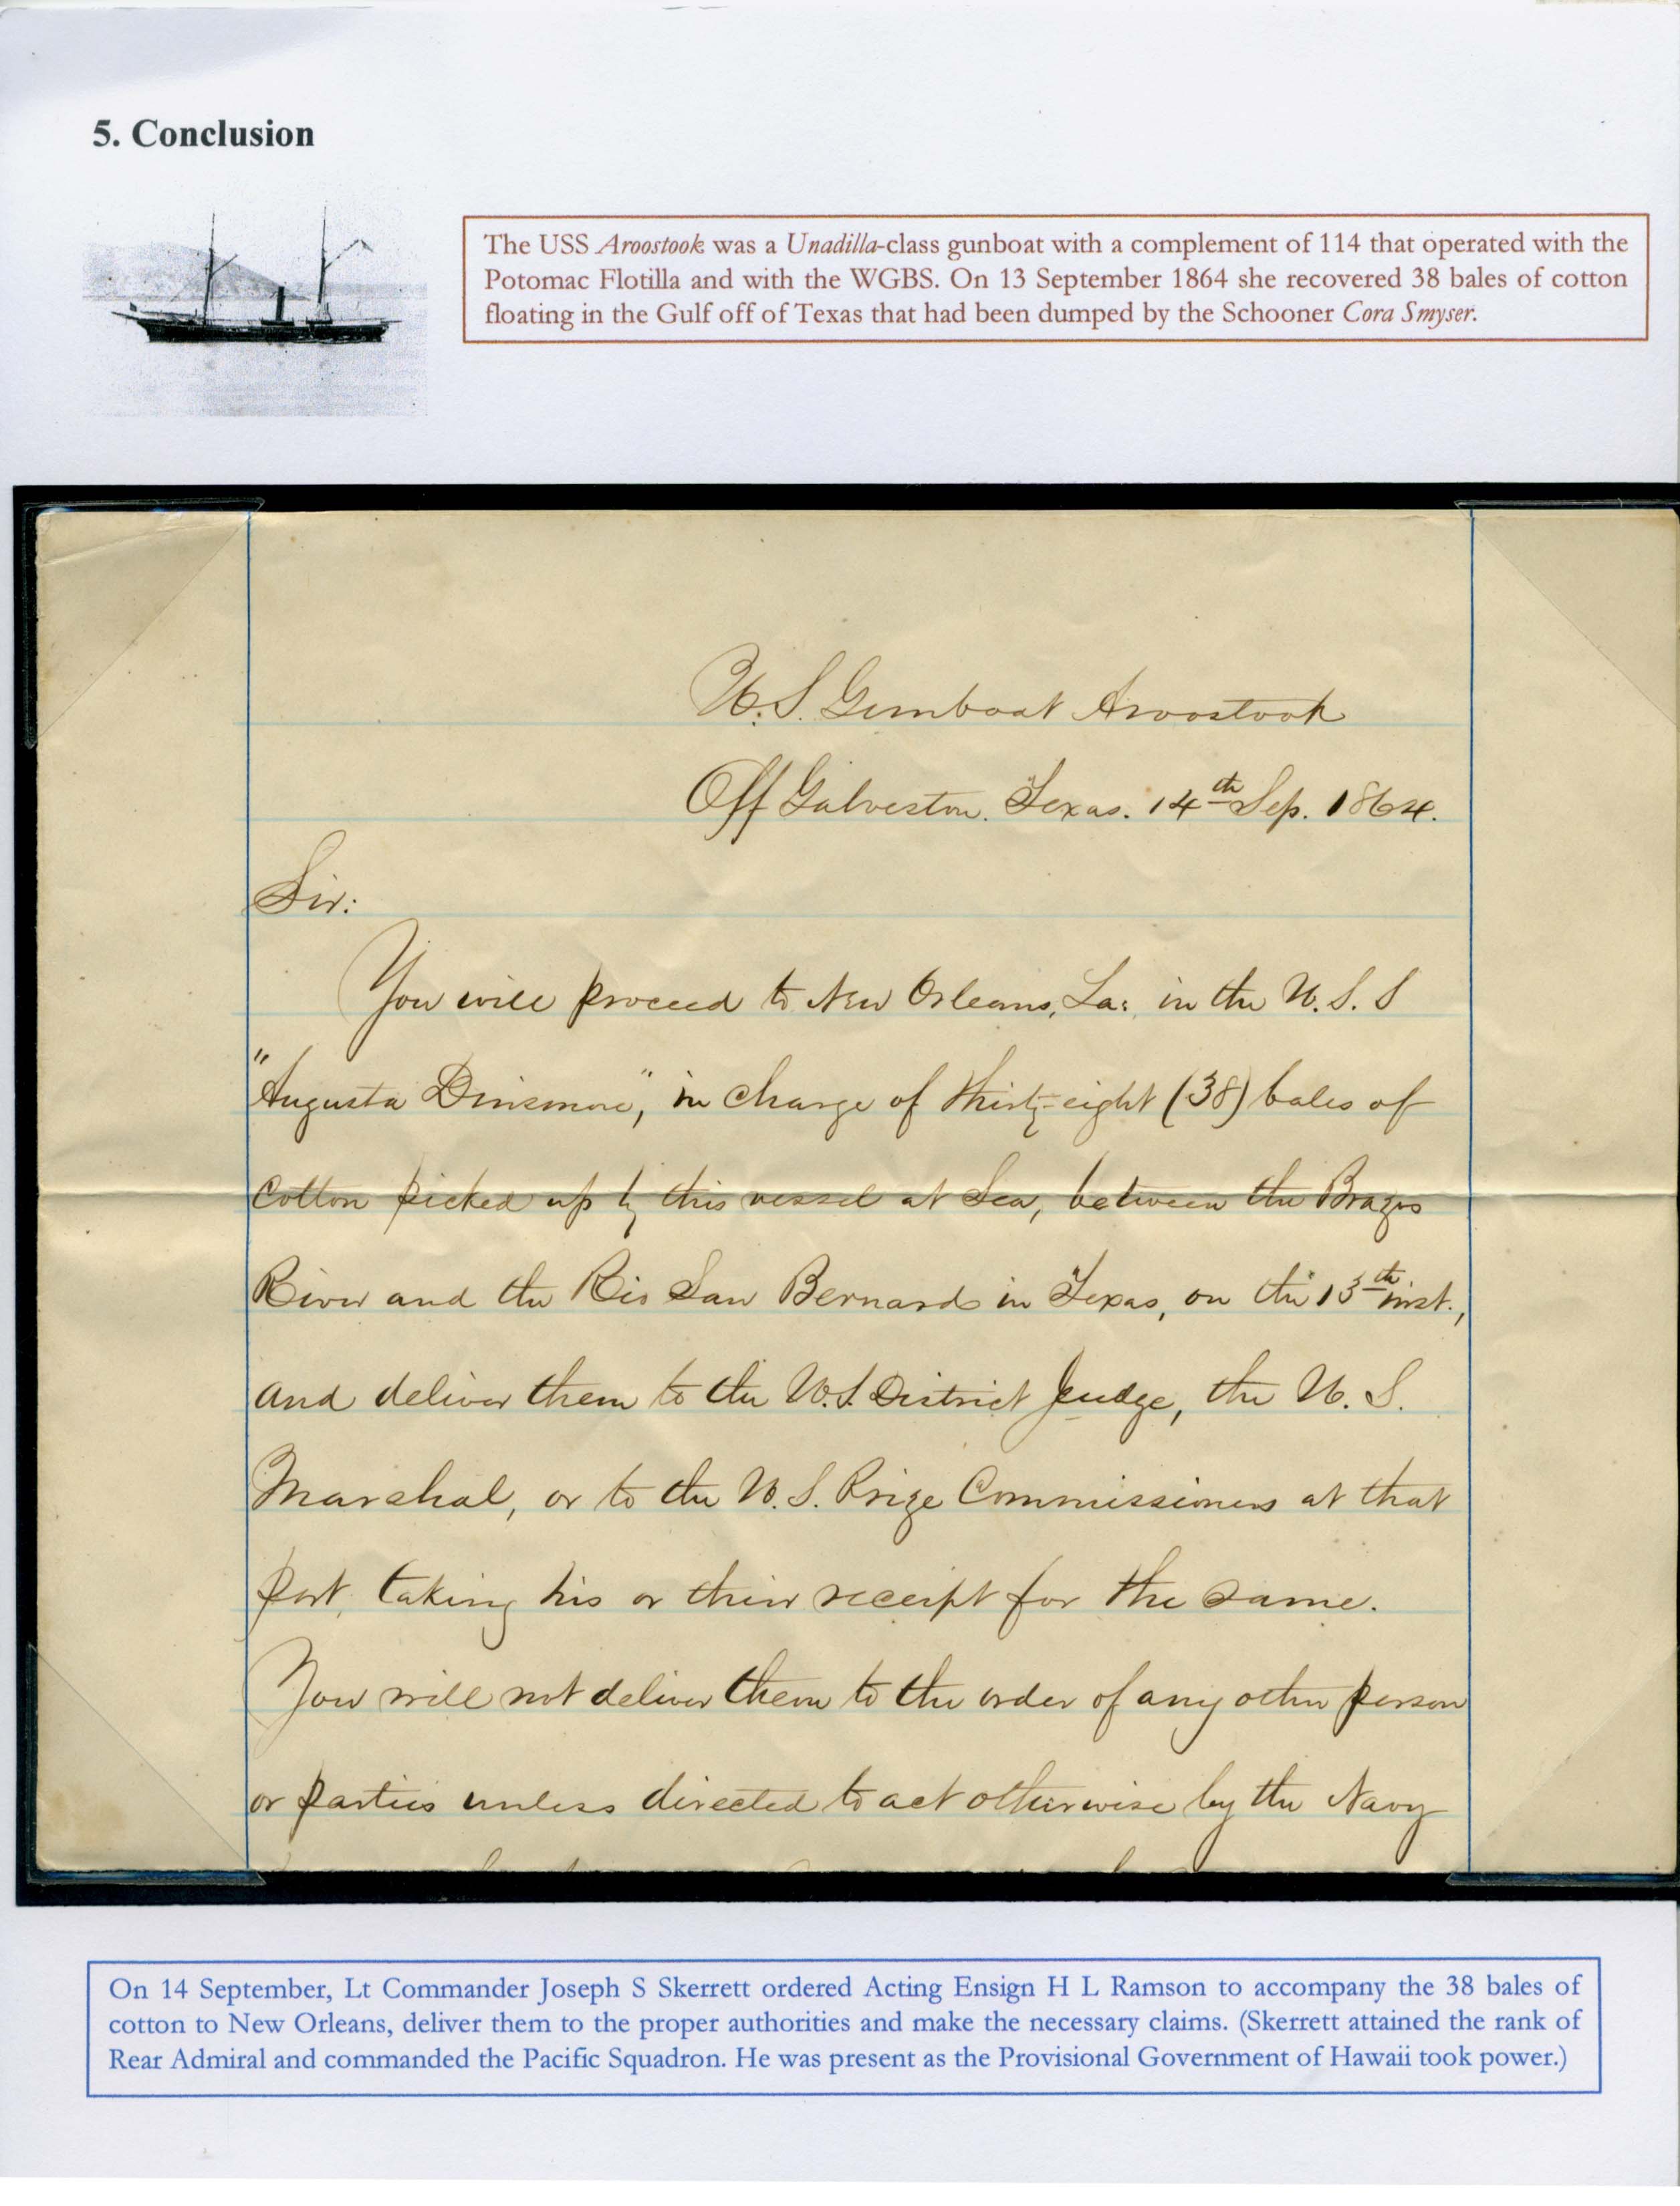 5. Conclusion
The USS Aroostook was a Unadilla-class gunboat with a complement of 114 that operated with the
Potomac Flotilla and with the WGBS. On 13 September 1864 she recovered 38 bales of cotton
floating in the Gulf off of Texas that had been dumped by the Schooner Cora Smyser.
U.S. Gunboat Aroostook
Off Galveston. Texas. 14th Sep. 1864.
Sir:
You will proceed to New Orleans, La: in the U.S.S
"Augusta Dinsmore", in charge of thirty-eight (38) bales of
Cotton picked up by this vessel at Sea, between the Brazos
River and the Rio San Bernard in Texas, on the 13th inst.,
and deliver them to the U.S. District Judge, the U.S.
Marshal, or to the U.S. Prize Commissioners at that
port, taking his or their receipt for the same.
You will not deliver them to the order of any other person
or parties unless directed to act otherwise by the Navy
On 14 September, Lt Commander Joseph S Skerrett ordered Acting Ensign H L Ramson to accompany the 38 bales of
cotton to New Orleans, deliver them to the proper authorities and make the necessary claims. (Skerrett attained the rank of
Rear Admiral and commanded the Pacific Squadron. He was present as the Provisional Government of Hawaii took power.)